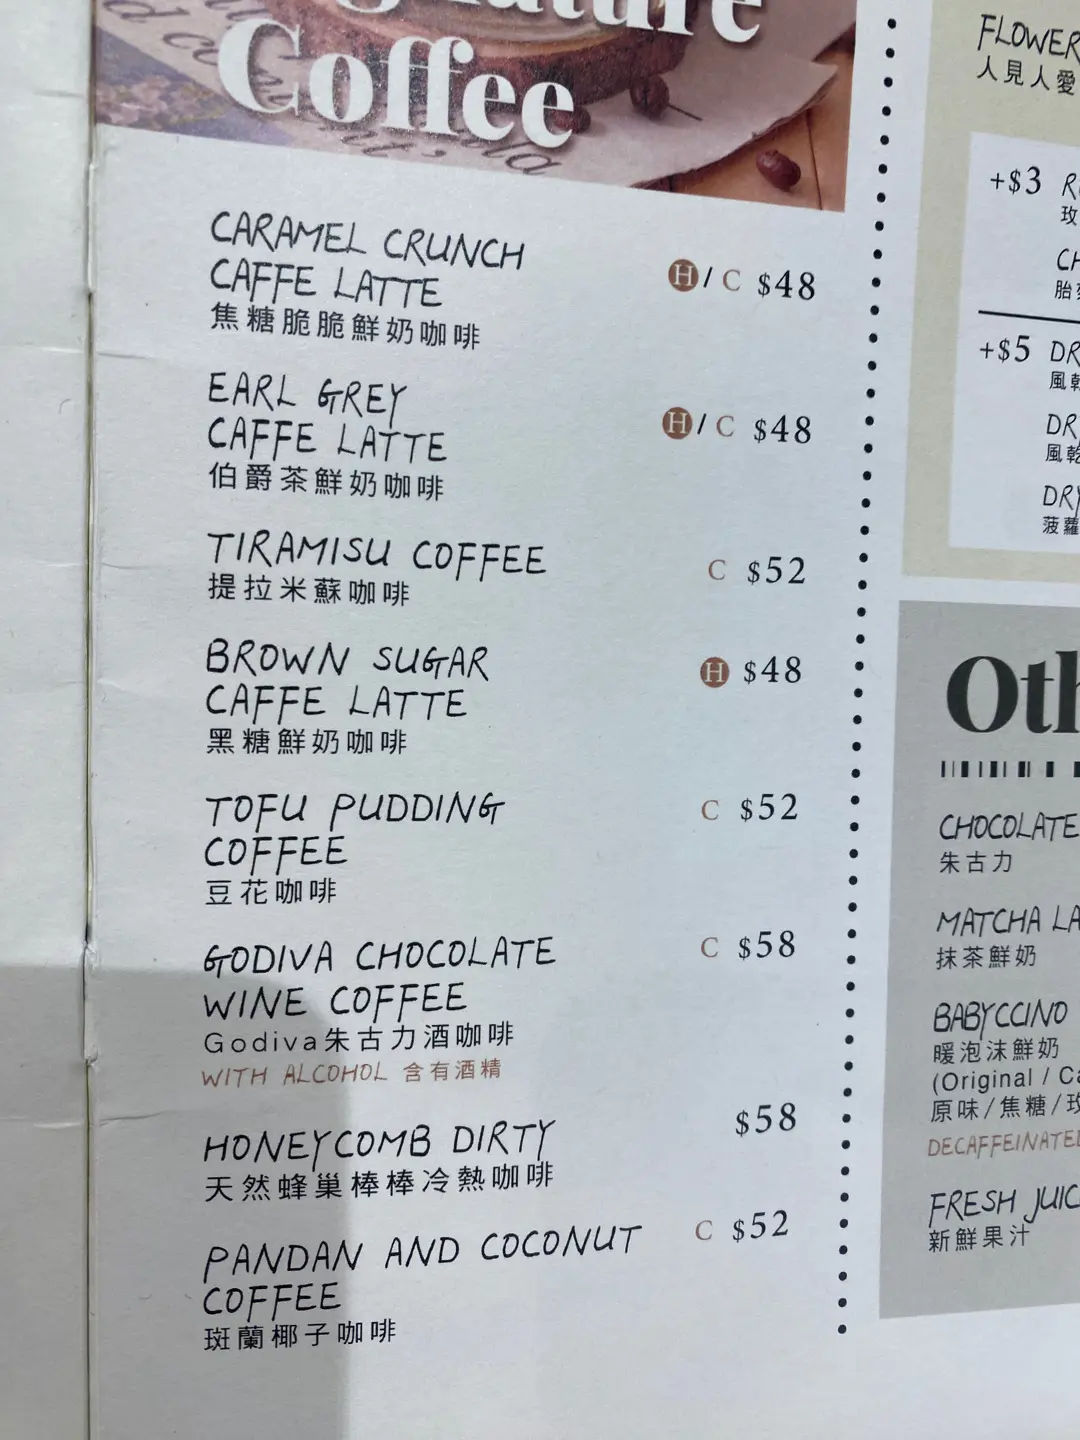 Coffee
CARAMEL CRUNCH
CAFFE LATTE
焦糖脆脆鮮奶咖啡
H / C $48
EARL GREY
CAFFE LATTE
伯爵茶鮮奶咖啡
H / C $48
TIRAMISU COFFEE
提拉米蘇咖啡
C $52
BROWN SUGAR
CAFFE LATTE
黑糖鮮奶咖啡
H $48
TOFU PUDDING
COFFEE
豆花咖啡
C $52
GODIVA CHOCOLATE
WINE COFFEE
Godiva朱古力酒咖啡
WITH ALCOHOL 含有酒精
C $58
HONEYCOMB DIRTY
天然蜂巢棒棒冷熱咖啡
$58
PANDAN AND COCONUT
COFFEE
斑蘭椰子咖啡
C $52
FLOWER
人見人愛
+$3
玫
胎
+$5
風乾
風乾
菠蘿
CHOCOLATE
朱古力
MATCHA
抹茶鮮奶
BABYCCINO
暖泡沫鮮奶
(Original /
原味/焦糖/玫
DECAFFEINATED
FRESH
新鮮果汁